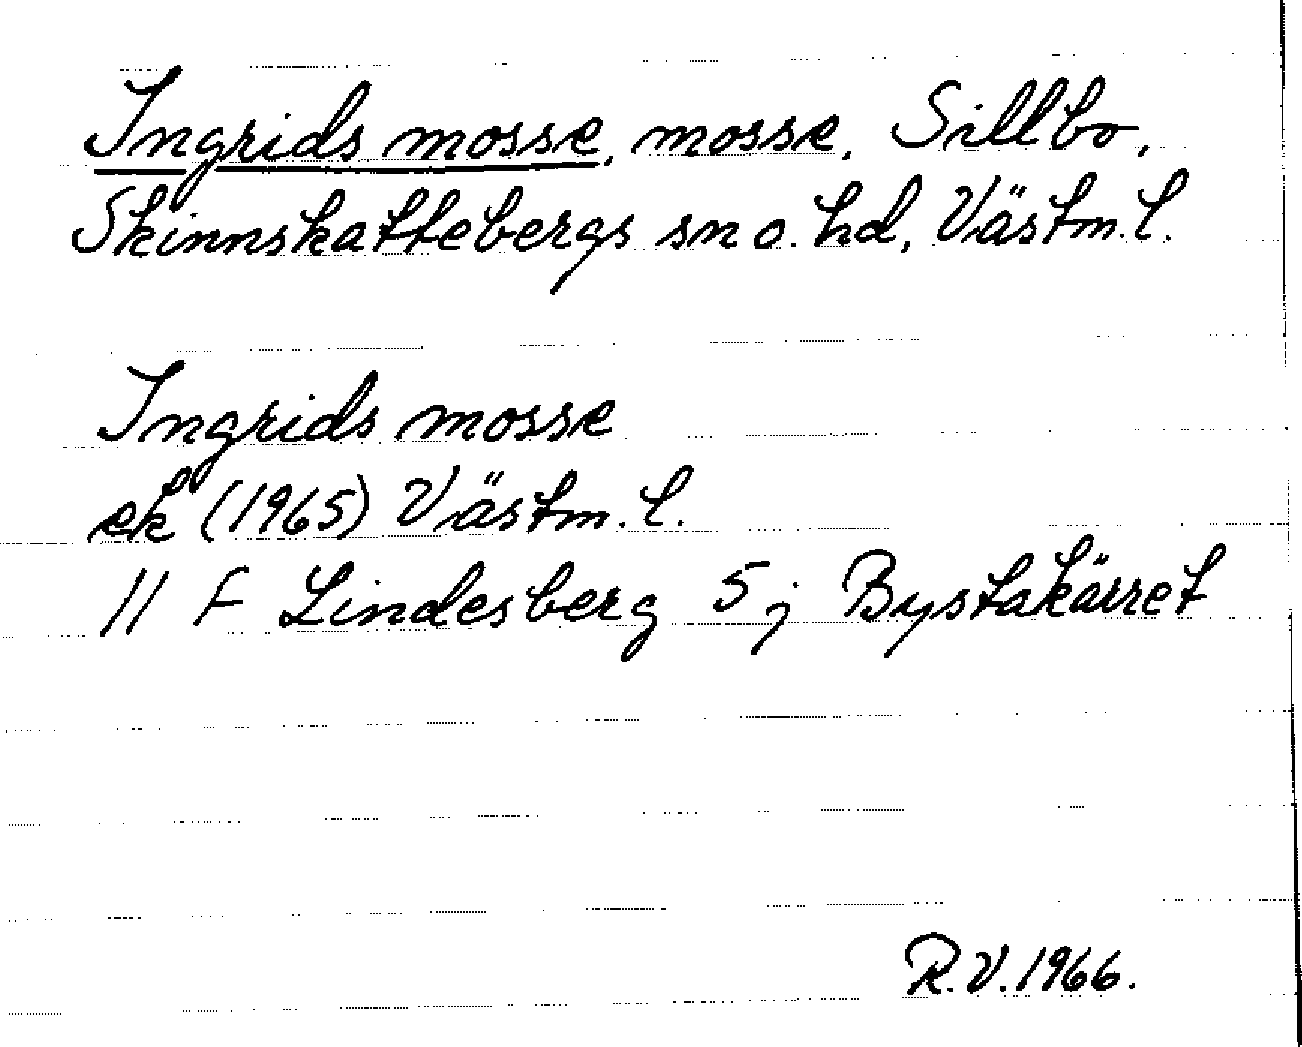 Ingrids mosse, mosse, Sillbo,
Skinnskattebergs sn o. hd, Västm. l.
Ingrids mosse
ek (1965) Västm. l.
11 F Lindesberg 5 j Bystakärret
R.V. 1966.